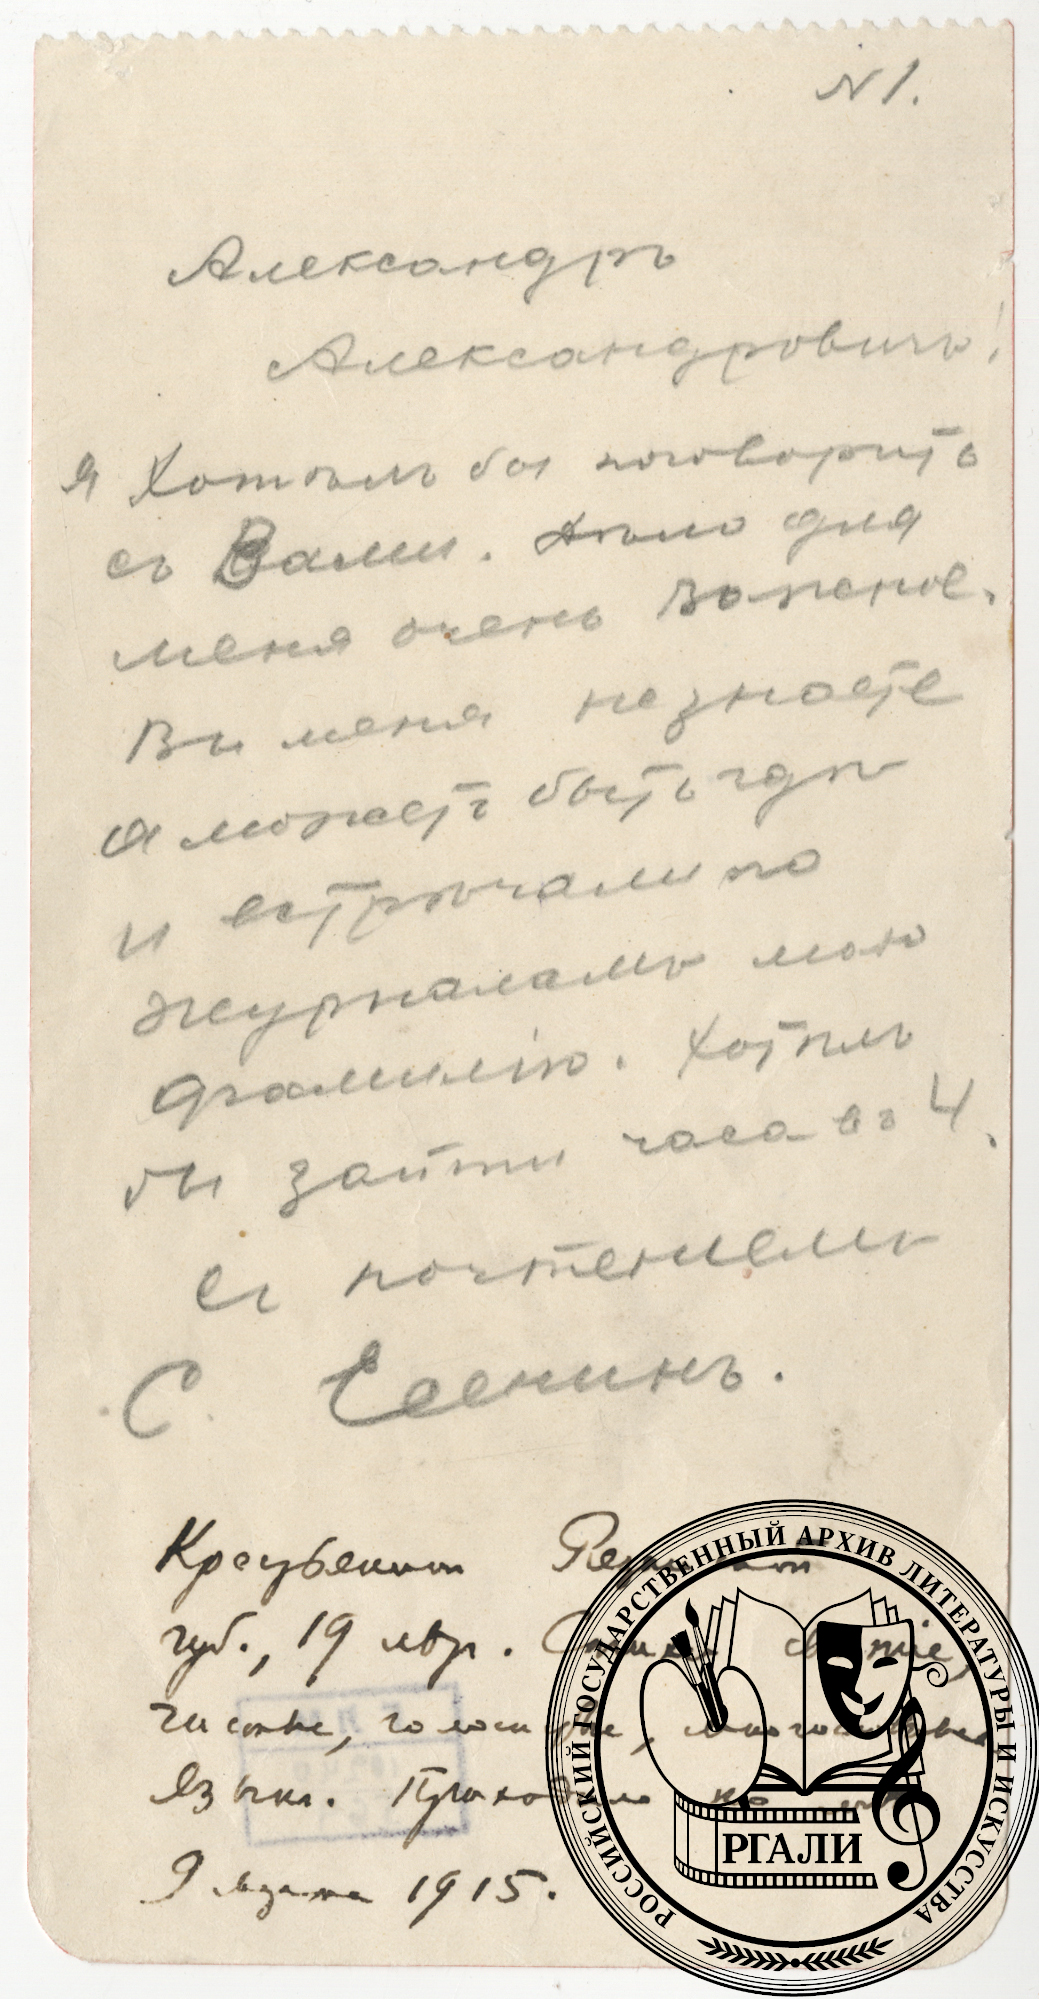 N 1.
Александръ
Александровичъ!
Я хотѣлъ бы поговорить
съ Вами. Дѣло для
меня очень важное.
Вы меня не знаете
а можетъ быть гдѣ
и встрѣчали по
журналамъ мою
фамилію. Хотѣлъ
бы зайти часа въ 4.
Съ почтеніемъ
С. Есенинъ.
Крестьянин Рязанской
губ., 19 лет. Стихи свежие,
чистые, голосистые, многословный
язык. Приходил ко мне
9 марта 1915.
РОССИЙСКИЙ ГОСУДАРСТВЕННЫЙ АРХИВ ЛИТЕРАТУРЫ И ИСКУССТВА
РГАЛИ